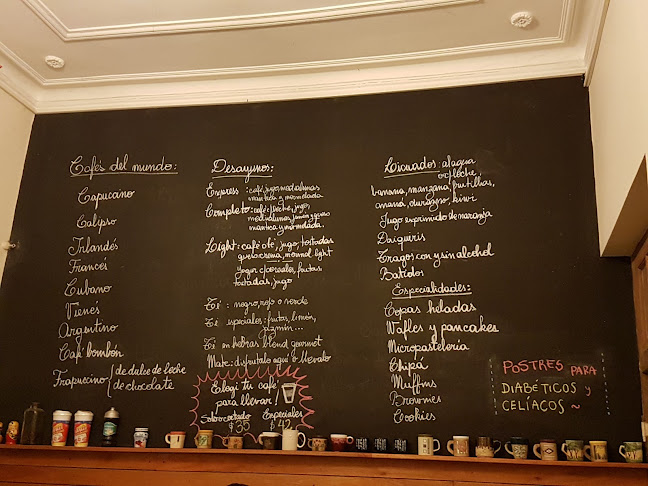 Cafés del mundo:
Capucino
Calypso
Irlandés
Francés
Cubano
Vienés
Argentino
Café bombón
Frapuccino de dulce de leche
de chocolate
Desayunos:
Express: café, jugo, medialunas
manteca y mermelada
Completo: café c/leche, jugo,
medialunas, jamón y queso
manteca y mermelada
Light: café c/le, jugo, tostadas
queso crema, mermel. light
Yogur c/cereales, frutas
tostadas, jugo
Té: negro, rojo o verde
Té especiales: frutas, limón,
jazmín...
Té en hebras blend gourmet
Mate: disfrutalo aquí o llevalo
Elegí tu café
para llevar!
Solo o cortado Especiales
$35 $42
Licuados: al agua
o c/leche
banana, manzana, frutillas,
ananá, durazno, kiwi
Jugo exprimido de naranja
Daiquiris
Tragos con y sin alcohol
Batidos
Especialidades:
Copas heladas
Wafles y pancakes
Micropastelería
Chipa
Muffins
Brownies
Cookies
POSTRES PARA
DIABÉTICOS y
CELÍACOS ~